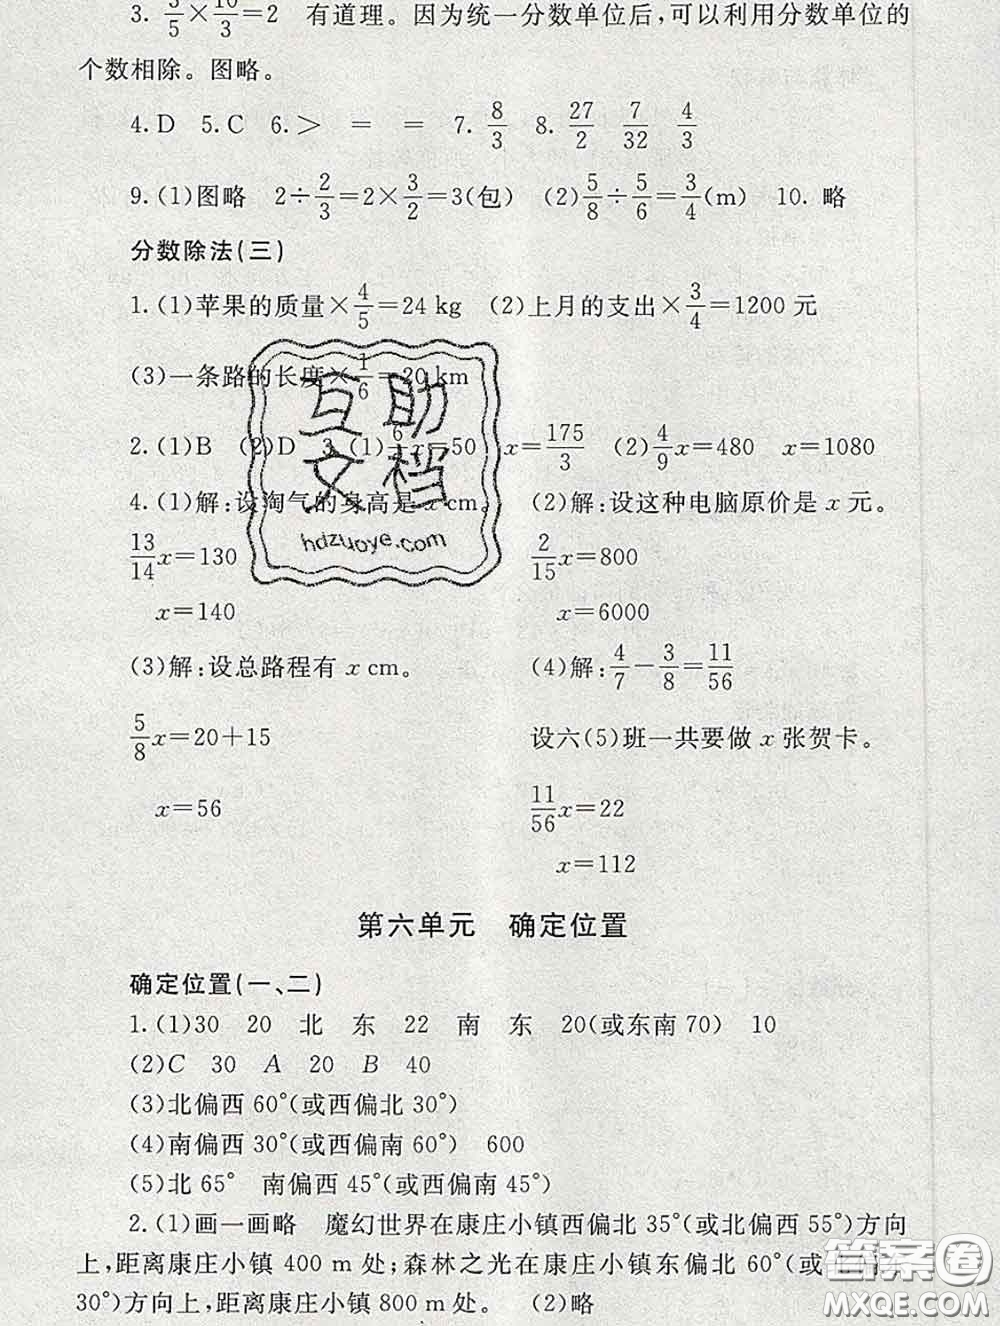 3. 3/5×10/3=2 有道理。因为统一分数单位后,可以利用分数单位的
个数相除。图略。
4. D 5. C 6. > = = 7. 8/3 8. 27/2 7/32 4/3
9. (1)图略 2÷2/3=2×3/2=3(包) (2)5/8÷5/6=3/4(m) 10. 略
分数除法(三)
1. (1)苹果的质量×4/5=24 kg (2)上月的支出×3/4=1200 元
(3)一条路的长度×1/6=20 km
2. (1)B (2)D 3. (1) x=50 x=175/3 (2)4/9x=480 x=1080
4. (1)解:设淘气的身高是 x cm。 (2)解:设这种电脑原价是 x 元。
13/14x=130 2/15x=800
x=140 x=6000
(3)解:设总路程有 x cm。 (4)解:4/7-3/8=11/56
5/8x=20+15 设六(5)班一共要做 x 张贺卡。
x=56 11/56x=22
x=112
互助
文档
hdzuoye.com
第六单元 确定位置
确定位置(一、二)
1. (1)30 20 北 东 22 南 东 20(或东南 70) 10
(2)C 30 A 20 B 40
(3)北偏西 60°(或西偏北 30°)
(4)南偏西 30°(或西偏南 60°) 600
(5)北 65° 南偏西 45°(或西偏南 45°)
2. (1)画一画略 魔幻世界在康庄小镇西偏北 35°(或北偏西 55°)方向
上,距离康庄小镇 400 m 处;森林之光在康庄小镇东偏北 60°(或
30°)方向上,距离康庄小镇 800 m 处。 (2)略
答案圈
MXQE.COM